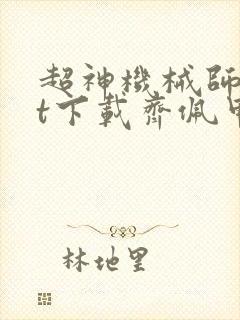 超神機械師
t下載齊佩甲
林地里